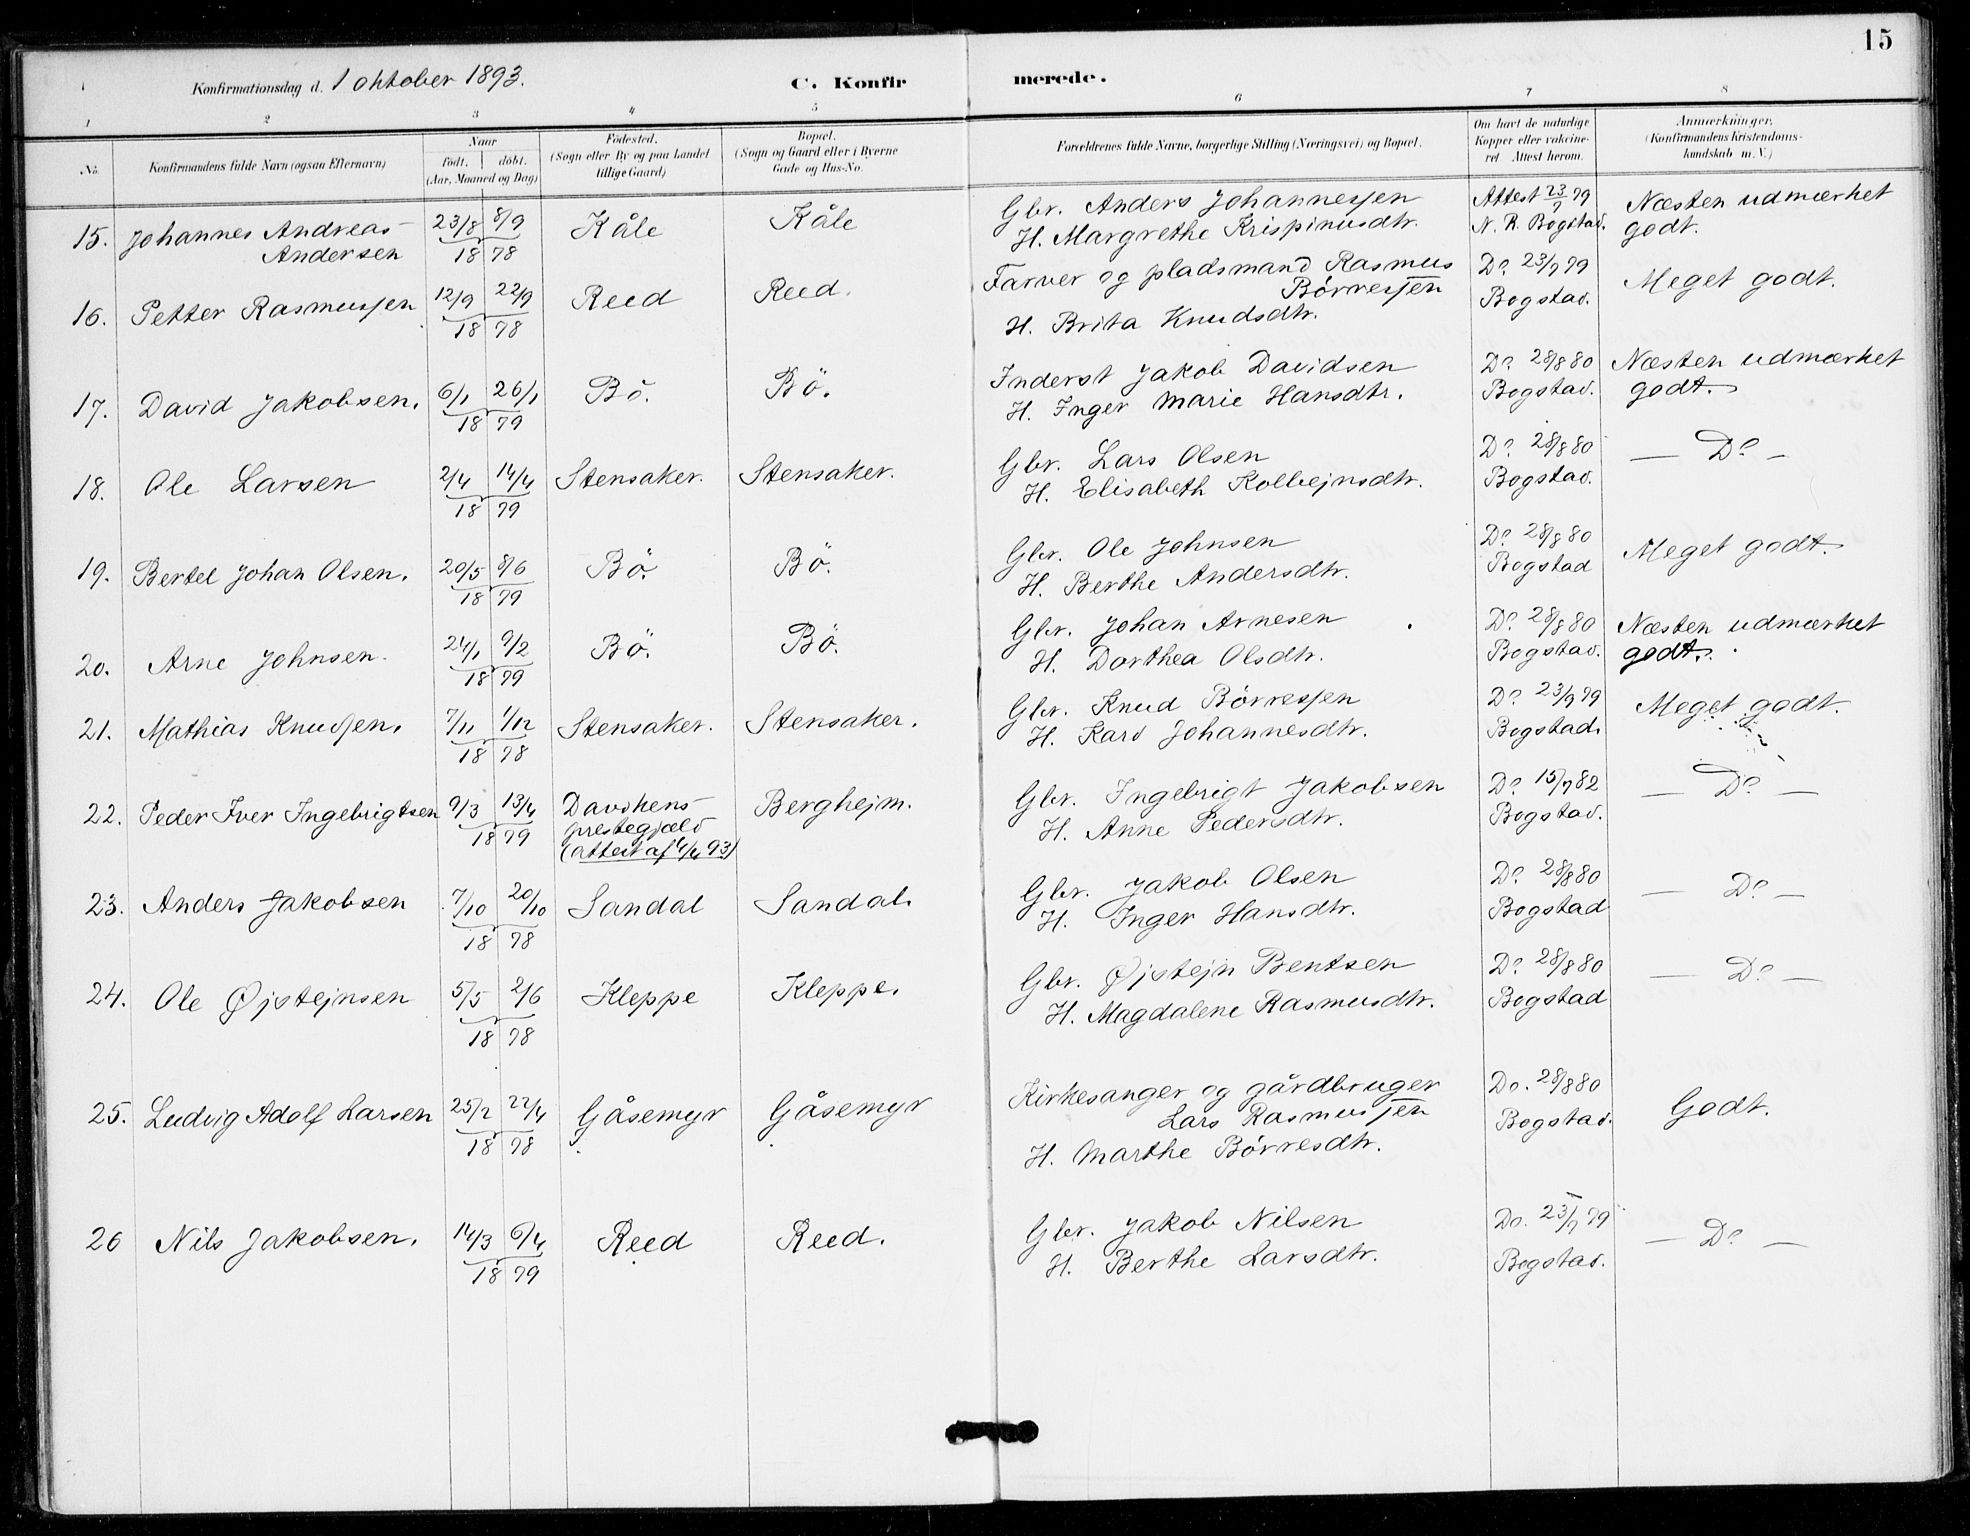 15
Konfirmationsdag d. 1 oktober 1893.
C. Konfir merede.
1 2 3 4 5 6 7 8
No.
Konfirmandens fulde Navn (ogsaa Efternavn)
Naar
født. døbt.
(Aar, Maaned og Dag)
Fødested.
(Sogn eller By og paa Landet
tillige Gaard)
Bopæl.
(Sogn og Gaard eller i Byerne
Gade og Hus-No.
Forældrenes fulde Navne, borgerlige Stilling (Næringsvei) og Bopæl.
Om havt de naturlige
Kopper eller vakcine-
ret Attest herom.
Anmærkninger.
(Konfirmandens Kristendoms-
kundskab m. V.)
15. Johannes Andreas 23/8 8/9 Kåle Kåle Gbr. Anders Johannesjen Attest 23/9 79 Næsten udmærket
Andersen 18 78 H. Margrethe Krispinusdtr. N. R. Bogstad. godt.
16. Petter Rasmusjen 12/9 22/9 Reed Reed. Farver og pladsmand Rasmus Do 23/9 79 Meget godt.
18 78 Børresjen Bogstad.
H. Brita Knudsdtr.
17. David Jakobsen. 6/1 26/1 Bö. Bö. Inderst Jakob Davidsen Do 28/8 80 Næsten udmærket
18 79 H. Inger Marie Hansdtr. Bogstad. godt.
18. Ole Larsen 2/4 14/4 Stensaker. Stensaker. Gbr. Lars Olsen Do 28/8 80 — Do —
18 79 H. Elisabeth Kolbejnsdtr. Bogstad.
19. Bertel Johan Olsen. 20/5 8/6 Bö. Bö. Gbr. Ole Johnsen Do 28/8 80 Meget godt.
18 79 H. Berthe Andersdtr. Bogstad
20. Arne Johnsen. 24/1 9/2 Bö. Bö. Gbr. Johan Arnesen Do 28/8 80 Næsten udmærket
18 79 H. Dorthea Olsdtr. Bogstad. godt.
21. Mathias Knudsjen. 7/11 1/12 Stensaker. Stensaker. Gbr. Knud Börresjen Do 23/9 79 Meget godt.
18 78 H. Kari Johannesdtr. Bogstad.
22. Peder Iver Ingebrigtsen 9/3 13/4 Davikens Berghejm. Gbr. Ingebrigt Jakobsen Do 15/9 82 — Do —
18 79 prestegjæld H. Anne Pedersdtr. Bogstad.
(attest af 4/4 93)
23. Anders Jakobsen 7/10 20/10 Sandal Sandal. Gbr. Jakob Olsen Do 28/8 80 — Do —
18 78 H. Inger Hansdtr. Bogstad
24. Ole Øjstejnsen 5/5 2/6 Kleppe Kleppe. Gbr. Øjstejn Bentsen Do 28/8 80 — Do —
18 78 H. Magdalene Rasmusdtr. Bogstad
25. Ludvig Adolf Larsen 25/2 22/4 Gåsemyr Gåsemyr Kirkesanger og gårdbruger Do. 28/8 80 Godt.
18 78 Lars Rasmusjen Bogstad.
H. Marthe Börresdtr.
26 Nils Jakobsen. 14/3 6/4 Reed Reed. Gbr. Jakob Nilsen Do. 23/9 79 — Do —
18 79 H. Berthe Larsdtr. Bogstad.